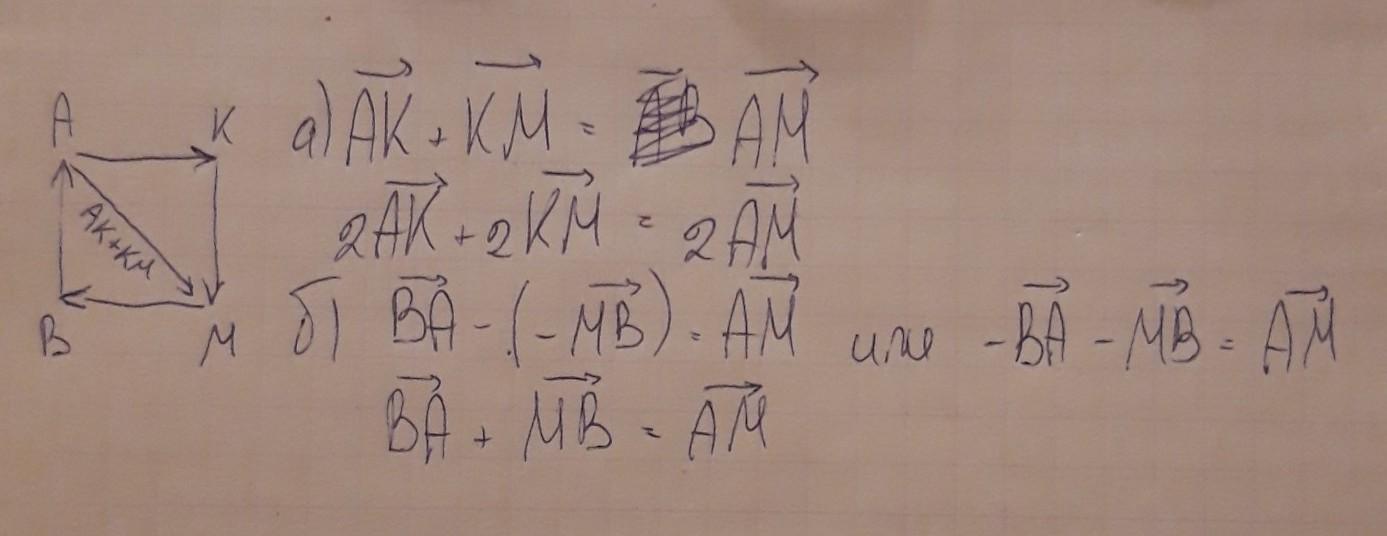 A K
AK+KM
B M
а) AK + KM = AM
2AK + 2KM = 2AM
б) BA - (-MB) = AM или -BA - MB = AM
BA + MB = AM